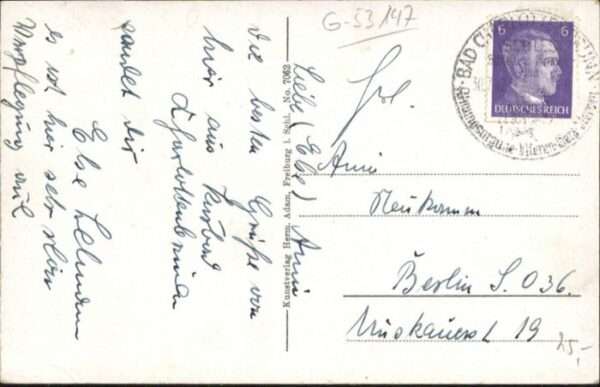 G-53147
Liebe (Else) Anni
die besten Grüße von
hier aus Kurbad
Charlottenbrunn
sendet dir
Else Lehmann
es ist hier sehr schön
Verpflegung auch
Kunstverlag Herm. Adam, Freiburg i. Schl. No. 7062
6 6
DEUTSCHES REICH
BAD CHARLOTTENBRUNN
Frl.
Anni
Neukamm
Berlin S. O 36.
Muskauerst 19
25,-